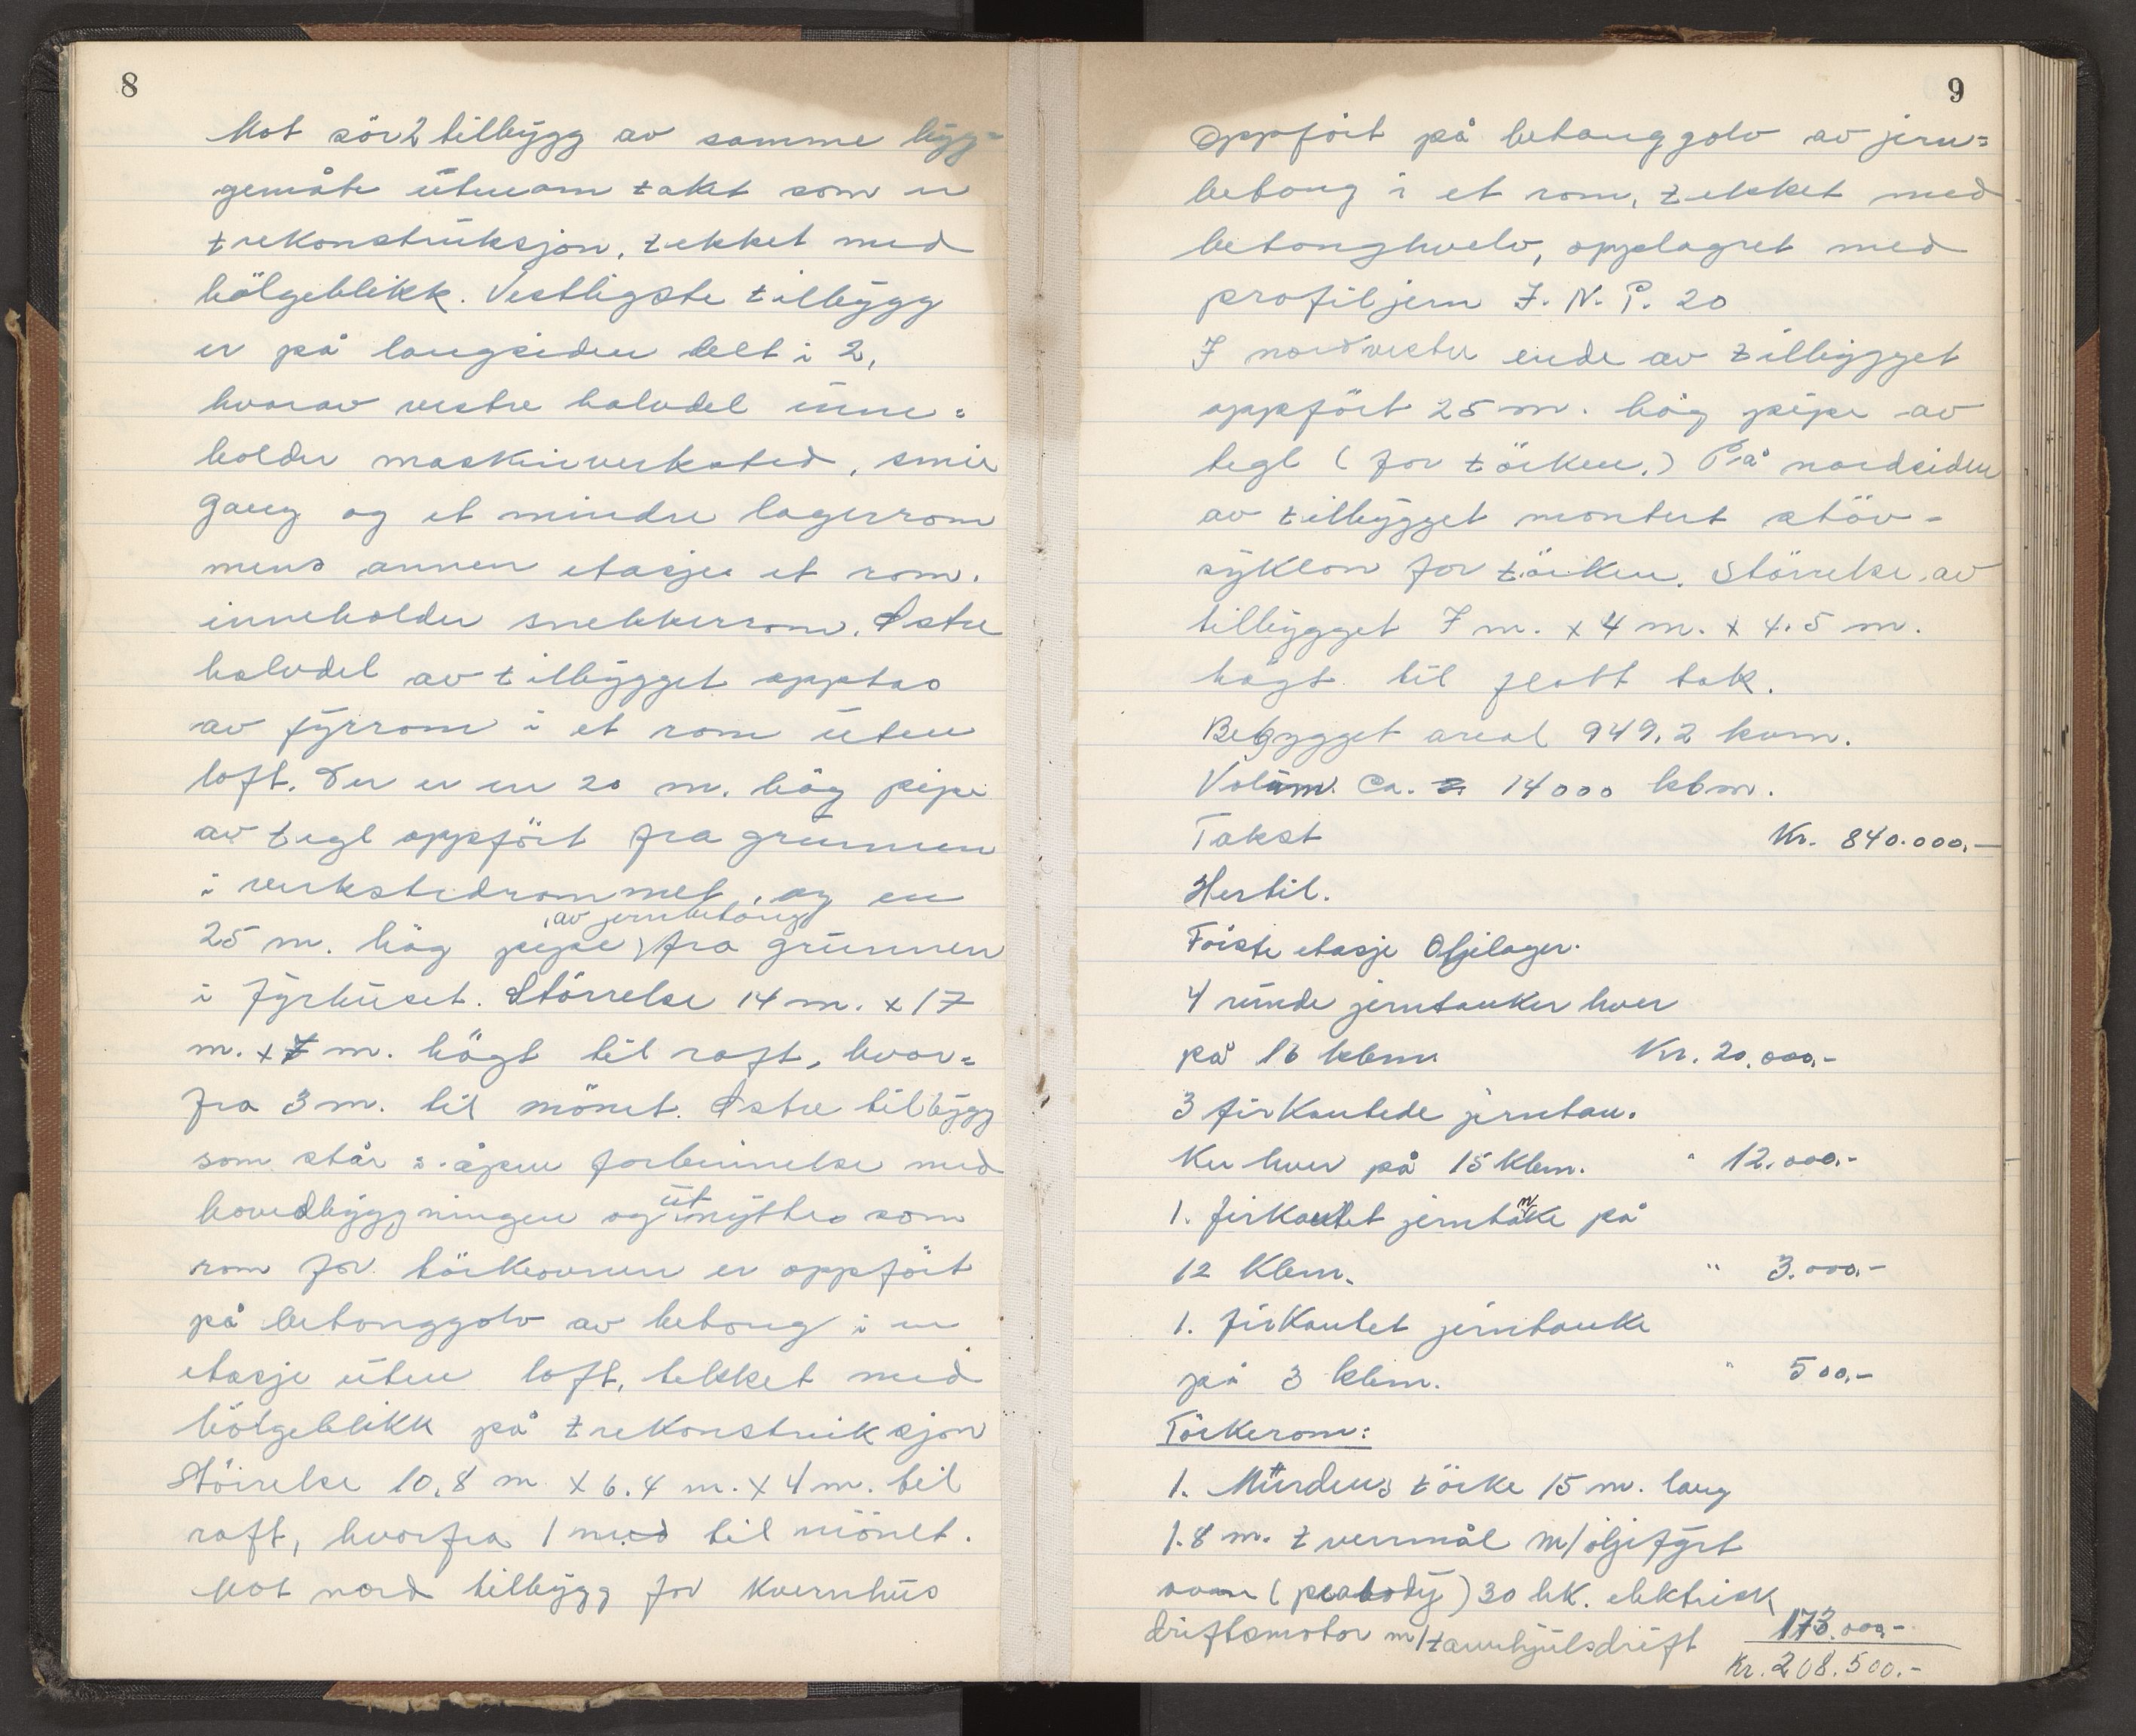 8
Mot sör 2 tilbygg av samme bygg=
gemåte utenom taket som er
trekonstruksjon, tekket med
bölgeblikk. Vestligste tilbygg
er på langsiden delt i 2,
hvorav vestre halvdel inne=
holder maskinverksted, smie
gang og et mindre lagerrom
mens annen etasje et rom.
inneholder snekkerrom. Östre
halvdel av tilbygget opptas
av fyrrom i et rom uten
loft. Der er en 20 m. hög pipe
av tegl oppfört fra grunnen
i verkstedrommet, og en
25 m. hög pipe, av jernbetong, fra grunnen
i fyrhuset. Störrelse 14 m. x 17
m. x 7 m. högt til raft, hvor=
fra 3 m. til mönet. Östre tilbygg
som står i åpen forbinnelse med
hovedbyggningen og utnyttes som
rom for törkeovnen er oppfört
på betonggolv av betong i en
etasje uten loft, tekket med
bölgeblikk på trekonstruksjon
Störrelse 10.8 m x 6.4 m. x 4 m. til
raft, hvorfra 1 med til mönet.
Mot nord tilbygg for kvernhus
9
Oppfört på betonggolv av jern=
betong i et rom, tekket med
betonghvelv, opplagret med
profiljern I. N. P. 20
I nordvestre ende av tilbygget
oppfört 25 m. hög pipe av
tegl (for törken.) På nordsiden
av tilbygget montert stöv-
syklon for törken. Störrelse av
tilbygget 7 m. x 4 m. x 4.5 m.
högt til flatt tak.
Bebygget areal 949,2 kvm.
Volum ca. 14000 kbm.
Takst Kr. 840.000,-
Hertil.
Förste etasje Oljelager.
4 runde jerntanker hver
på 16 kbm. Kr. 20.000,-
3 firkantede jerntan.
ker hver på 15 kbm. " 12.000,-
1. firkantet jerntanke på
12 kbm. " 3.000,-
1. firkantet jerntanke
på 3 kbm. " 500,-
Törkerom:
1. Mürdens törke 15 m. lang
1.8 m. tverrmål m/oljefyrt
ovn (peabody) 30 hk. elektrisk
driftsmotor m/tannhjulsdrift 173.000,-
Kr. 208.500,-